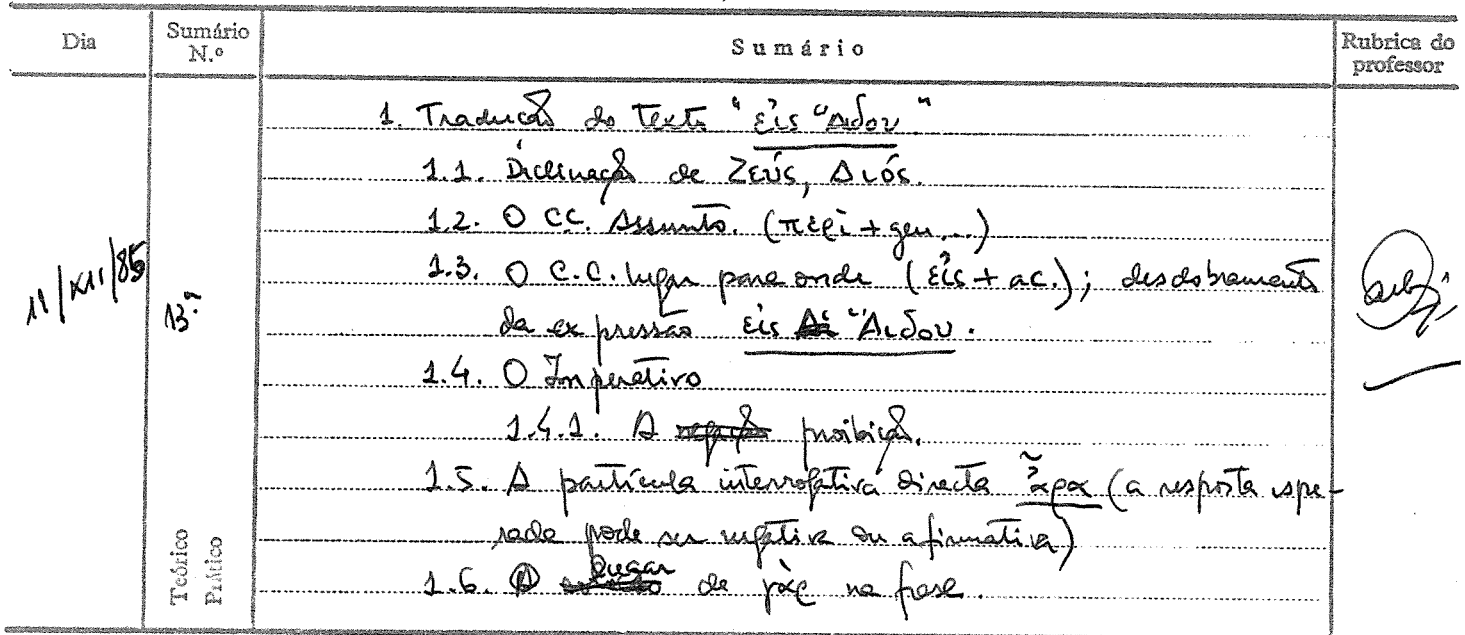 Dia
Sumário N.º
Sumário
Rubrica do professor
11/XII/85
13ª
Teórico
Prático
1. Tradução do texto "εἰς Ἅιδου"
1.1. Declinação de Ζεύς, Διός.
1.2. O C.C. Assunto. (περὶ + gen...)
1.3. O C.C. lugar para onde (εἰς + ac.); desdobramento
da expressão εἰς Ἅιδου.
1.4. O Imperativo
1.4.1. A negação proibição.
1.5. A partícula interrogativa directa ἆρα (a resposta espe-
rada pode ser negativa ou afirmativa)
1.6. O lugar de γὰρ na frase.